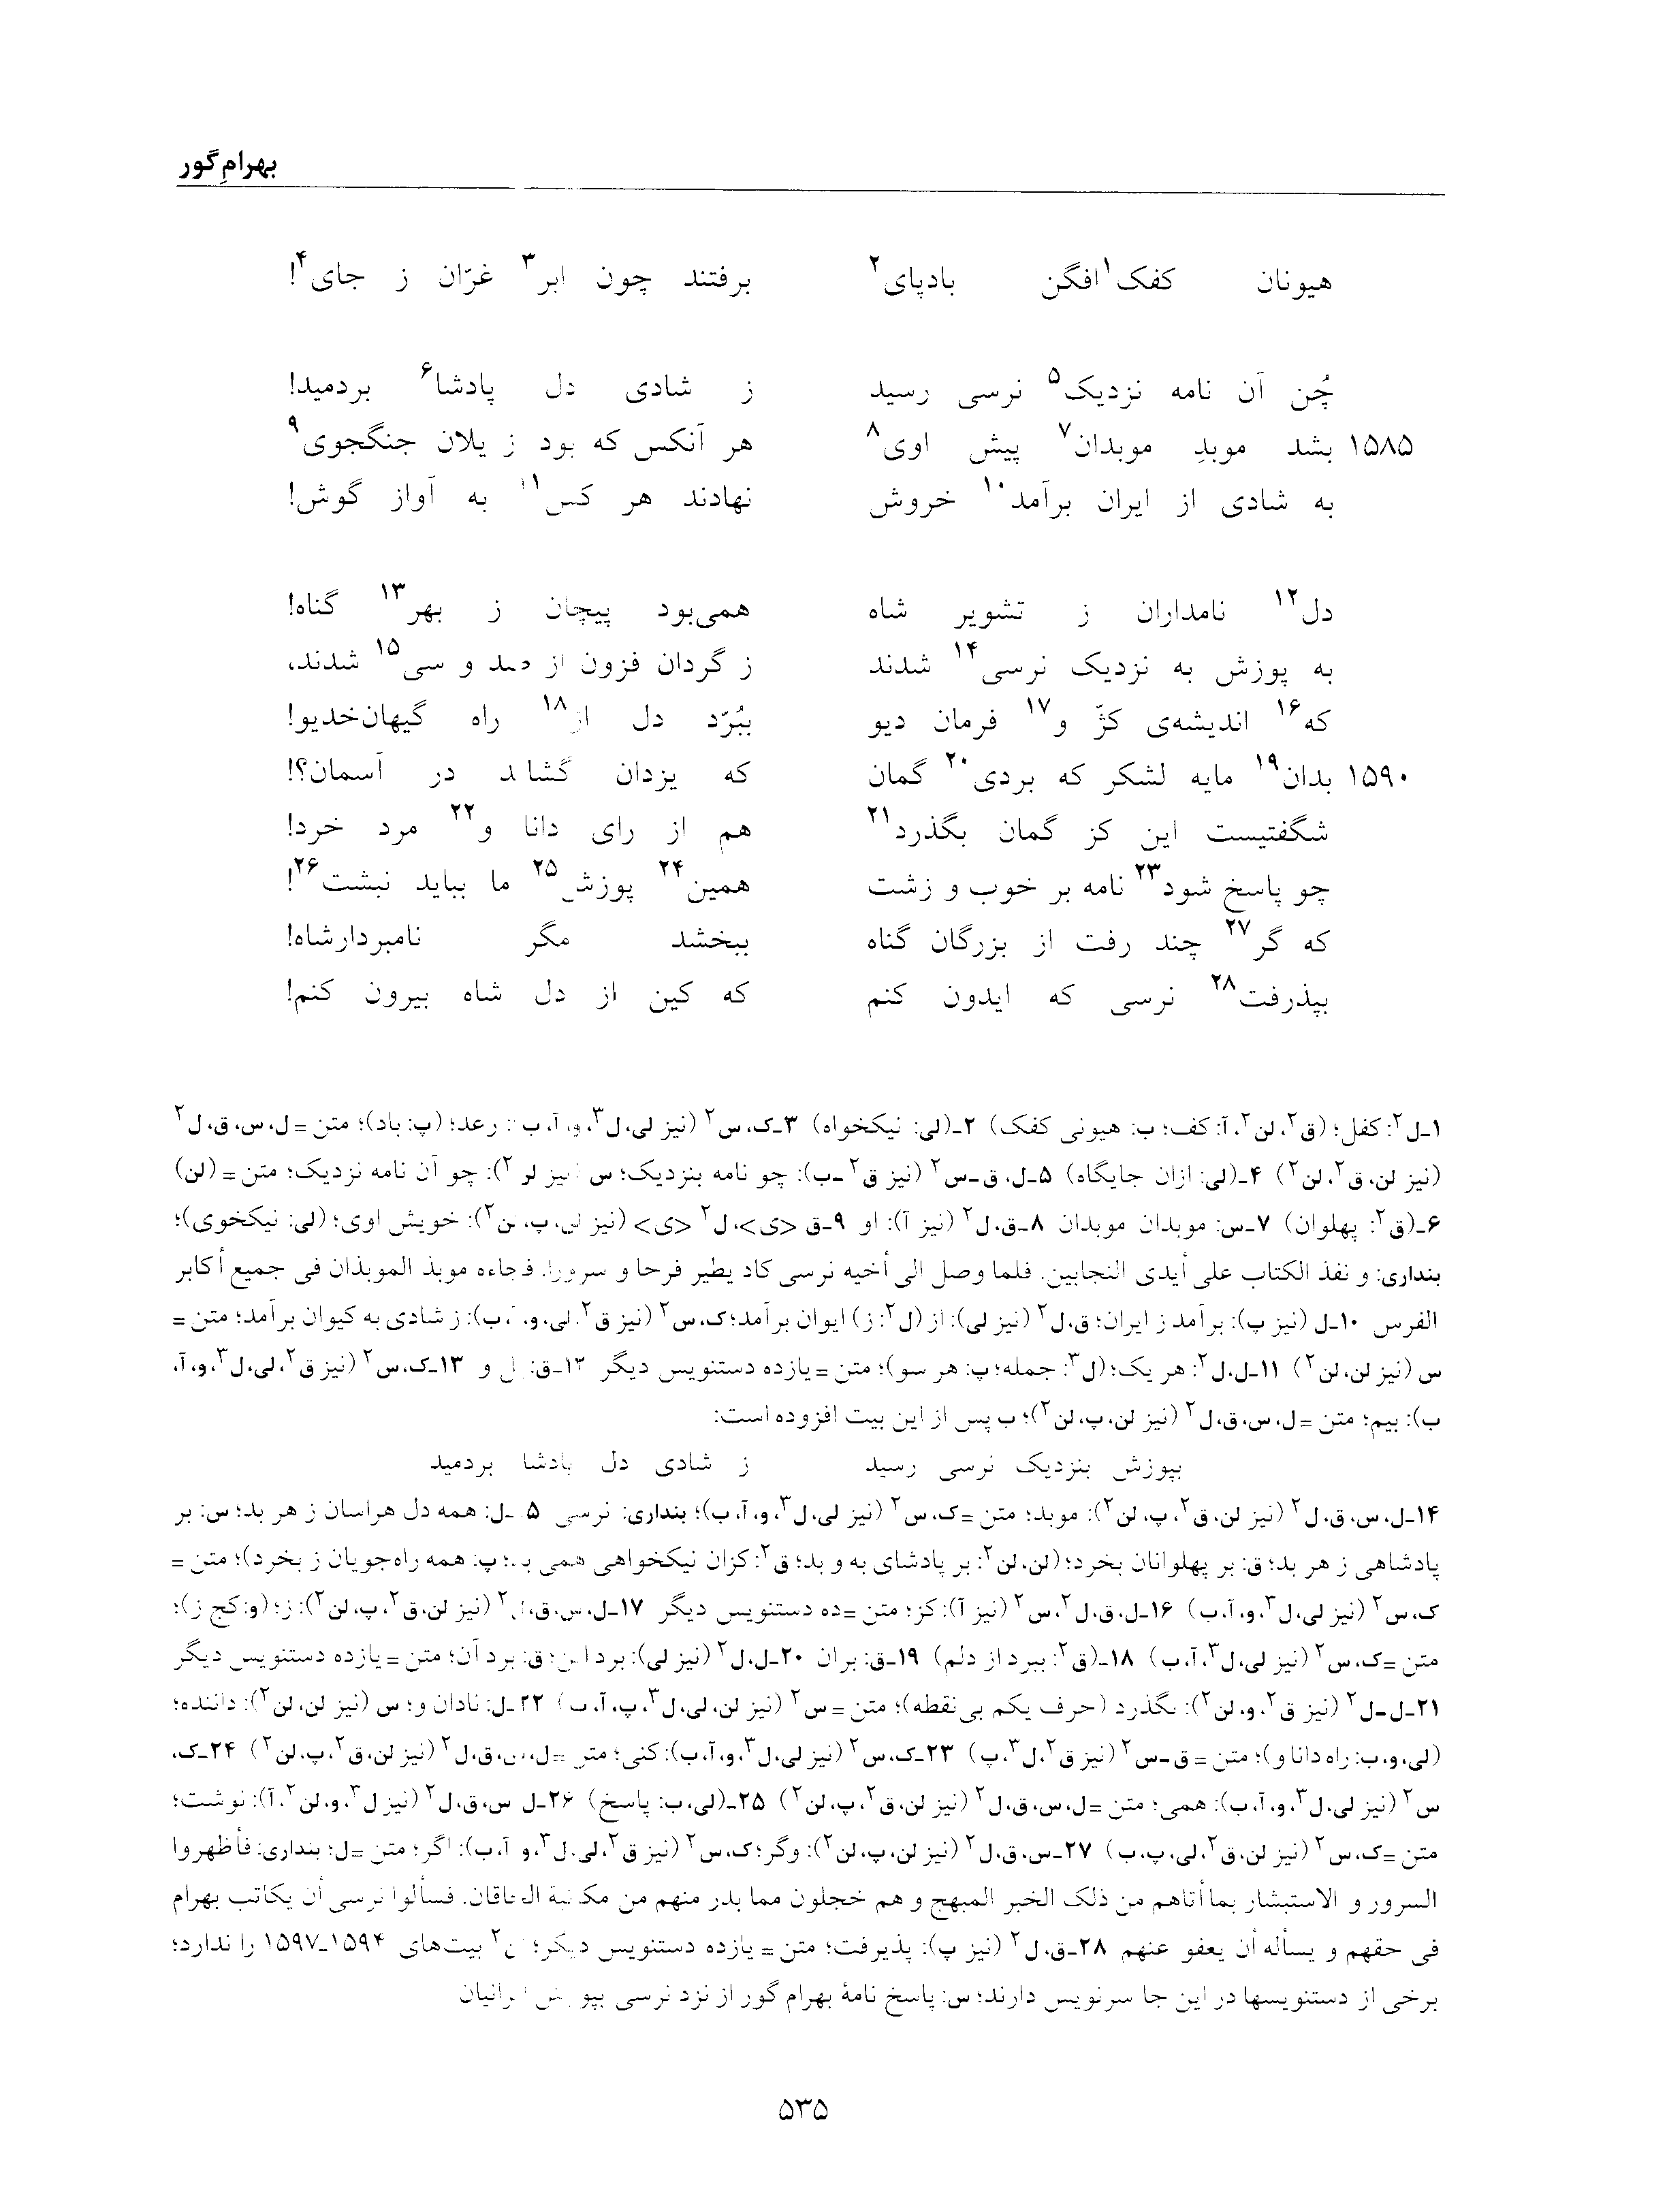 بهرامِ گور
هیونان کفک¹ افگن بادپای² برفتند چون ابر³ غرّان ز جای⁴!
چُن آن نامه نزدیک⁵ نرسی رسید ز شادی دل پادشا⁶ بردمید!
۱۵۸۵ بشد موبدِ موبدان⁷ پیش اوی⁸ هر آنکس که بود ز یلان جنگجوی⁹
به شادی از ایران برآمد¹⁰ خروش نهادند هر کس¹¹ به آواز گوش!
دل¹² نامداران ز تشویر شاه همی‌بود پیچان ز بهر¹³ گناه!
به پوزش به نزدیک نرسی¹⁴ شدند ز گردان فزون از صد و سی¹⁵ شدند،
که¹⁶ اندیشه‌ی کژّ و¹⁷ فرمان دیو ببُرّد دل از¹⁸ راه گیهان‌خدیو!
۱۵۹۰ بدان¹⁹ مایه لشکر که بردی²⁰ گمان که یزدان گشاید در آسمان؟!
شگفتیست این کز گمان بگذرد²¹ هم از رای دانا و²² مرد خرد!
چو پاسخ شود²³ نامه بر خوب و زشت همین²⁴ پوزش²⁵ ما بباید نبشت²⁶!
که گر²⁷ چند رفت از بزرگان گناه ببخشد مگر نامبردارشاه!
بپذرفت²⁸ نرسی که ایدون کنم که کین از دل شاه بیرون کنم!
۱ـ ل²: کفل؛ (ق²، لن²، آ: کف؛ ب: هیونی کفک) ۲ـ (لی: نیکخواه) ۳ـ ک، س² (نیز لی، ل³، و، آ، ب): رعد؛ (پ: باد)؛ متن = ل، س، ق، ل²
(نیز لن، ق²، لن²) ۴ـ (لی: ازان جایگاه) ۵ـ ل، ق ـ س² (نیز ق² ـ ب): چو نامه بنزدیک؛ س (نیز لن²): چو آن نامه نزدیک؛ متن = (لن)
۶ـ (ق²: پهلوان) ۷ـ س: موبدان موبدان ۸ـ ق، ل² (نیز آ): او ۹ـ ق <ی>، ل² <ی> (نیز لن، پ، لن²): خویش اوی؛ (لی: نیکخوی)؛
بنداری: و نفذ الکتاب علی أیدی النجابین. فلما وصل الی أخیه نرسی کاد یطیر فرحا و سرورا. فجاءه موبذ الموبذان فی جمیع أکابر
الفرس ۱۰ـ ل (نیز پ): برآمد ز ایران؛ ق، ل² (نیز لی): از (ل²: ز) ایوان برآمد؛ ک، س² (نیز ق²، لی، و، آ، ب): ز شادی به کیوان برآمد؛ متن =
س (نیز لن، لن²) ۱۱ـ ل، ل²: هر یک؛ (ل³: جمله؛ پ: هر سو)؛ متن = یازده دستنویس دیگر ۱۲ـ ق: دل و ۱۳ـ ک، س² (نیز ق²، لی، ل³، و، آ،
ب): بیم؛ متن = ل، س، ق، ل² (نیز لن، پ، لن²)؛ ب پس از این بیت افزوده است:
بپوزش بنزدیک نرسی رسید ز شادی دل پادشا بردمید
۱۴ـ ل، س، ق، ل² (نیز لن، ق²، پ، لن²): موبد؛ متن = ک، س² (نیز لی، ل³، و، آ، ب)؛ بنداری: نرسی ۱۵ـ ل: همه دل هراسان ز هر بد؛ س: بر
پادشاهی ز هر بد؛ ق: بر پهلوانان بخرد؛ (لن، لن²: بر پادشای به و بد؛ ق²: کزان نیکخواهی همی بد؛ پ: همه راه‌جویان ز بخرد)؛ متن =
ک، س² (نیز لی، ل³، و، آ، ب) ۱۶ـ ل، ق، ل²، س² (نیز آ): کز؛ متن = ده دستنویس دیگر ۱۷ـ ل، س، ق، ل² (نیز لن، ق²، پ، لن²): ز؛ (و: کج ز)؛
متن = ک، س² (نیز لی، ل³، آ، ب) ۱۸ـ (ق²: ببرد از دلم) ۱۹ـ ق: بران ۲۰ـ ل، ل² (نیز لی): برد این؛ ق: برد آن؛ متن = یازده دستنویس دیگر
۲۱ـ ل ـ ل² (نیز ق²، و، لن²): نگذرد (حرف یکم بی‌نقطه)؛ متن = س² (نیز لن، لی، ل³، پ، آ، ب) ۲۲ـ ل: نادان و؛ س (نیز لن، لن²): داننده؛
(لی، و، ب: راه دانا و)؛ متن = ق ـ س² (نیز ق²، ل³، پ) ۲۳ـ ک، س² (نیز لی، ل³، و، آ، ب): کنی؛ متن = ل، س، ق، ل² (نیز لن، ق²، پ، لن²) ۲۴ـ ک،
س² (نیز لی، ل³، و، آ، ب): همی؛ متن = ل، س، ق، ل² (نیز لن، ق²، پ، لن²) ۲۵ـ (لی، ب: پاسخ) ۲۶ـ ل، س، ق، ل² (نیز ل³، و، لن²، آ): نوشت؛
متن = ک، س² (نیز لن، ق²، لی، پ، ب) ۲۷ـ س، ق، ل² (نیز لن، پ، لن²): وگر؛ ک، س² (نیز ق²، لی، ل³، و، آ، ب): اگر؛ متن = ل؛ بنداری: فأظهروا
السرور و الاستبشار بما أتاهم من ذلک الخبر المبهج و هم خجلون مما بدر منهم من مکاتبة الخاقان. فسألوا نرسی أن یکاتب بهرام
فی حقهم و یسأله أن یعفو عنهم ۲۸ـ ق، ل² (نیز پ): پذیرفت؛ متن = یازده دستنویس دیگر؛ بیت‌های ۱۵۹۴ـ۱۵۹۷ را ندارد؛
برخی از دستنویسها در این جا سرنویس دارند؛ س: پاسخ نامهٔ بهرام گور از نزد نرسی بپوزش ایرانیان
۵۳۵